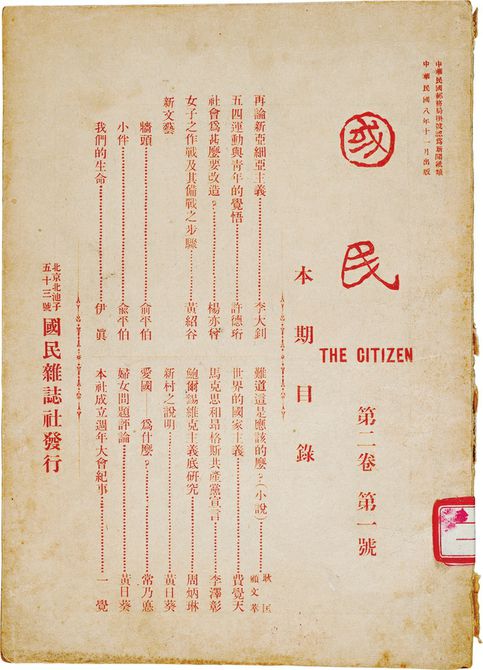 中華民國郵務局掛號認爲新聞紙類
中華民國八年十一月出版
國民
THE CITIZEN
第二卷 第一號
本期目錄
再論新亞細亞主義……李大釗
五四運動與靑年的覺悟……許德珩
社會爲甚麼要改造？……楊亦曾
女子之作戰及其備戰之步驟……黃紹谷
新文藝
牆頭……俞平伯
小伴……俞平伯
我們的生命……伊眞
難道這是應該的麼？(小說)……耿匡 顧文萃
世界的國家主義……費覺天
馬克思和昻格斯共產黨宣言……李澤彰
鮑爾錫維克主義底研究……周炳琳
新村之說明……黃日葵
愛國——爲什麼？……常乃悳
婦女問題評論……黃日葵
本社成立週年大會紀事……一覺
北京北池子
五十三號
國民雜誌社發行